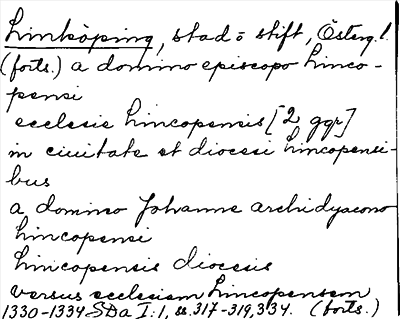 Linköping, stad o stift, Österg. l.
(forts.) a domino episcopo Linco-
pensi
ecclesie Lincopensis [2 ggr]
in ciuitate et diocesi Lincopensi-
bus
a domino Johanne archidyacono
Lincopensi
Lincopensis diocesis
versus ecclesiam Lincopensem
1330-1334 SDa I:1, ss. 317-319, 334. (forts.)